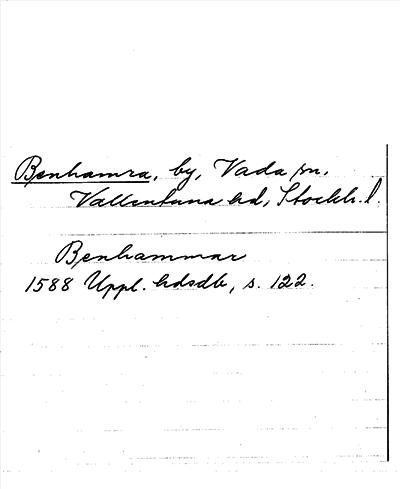 Benhamra, by, Vada sn,
Vallentuna hd, Stockh. l.
Benhammar
1588 Uppl. hdsdb, s. 122.